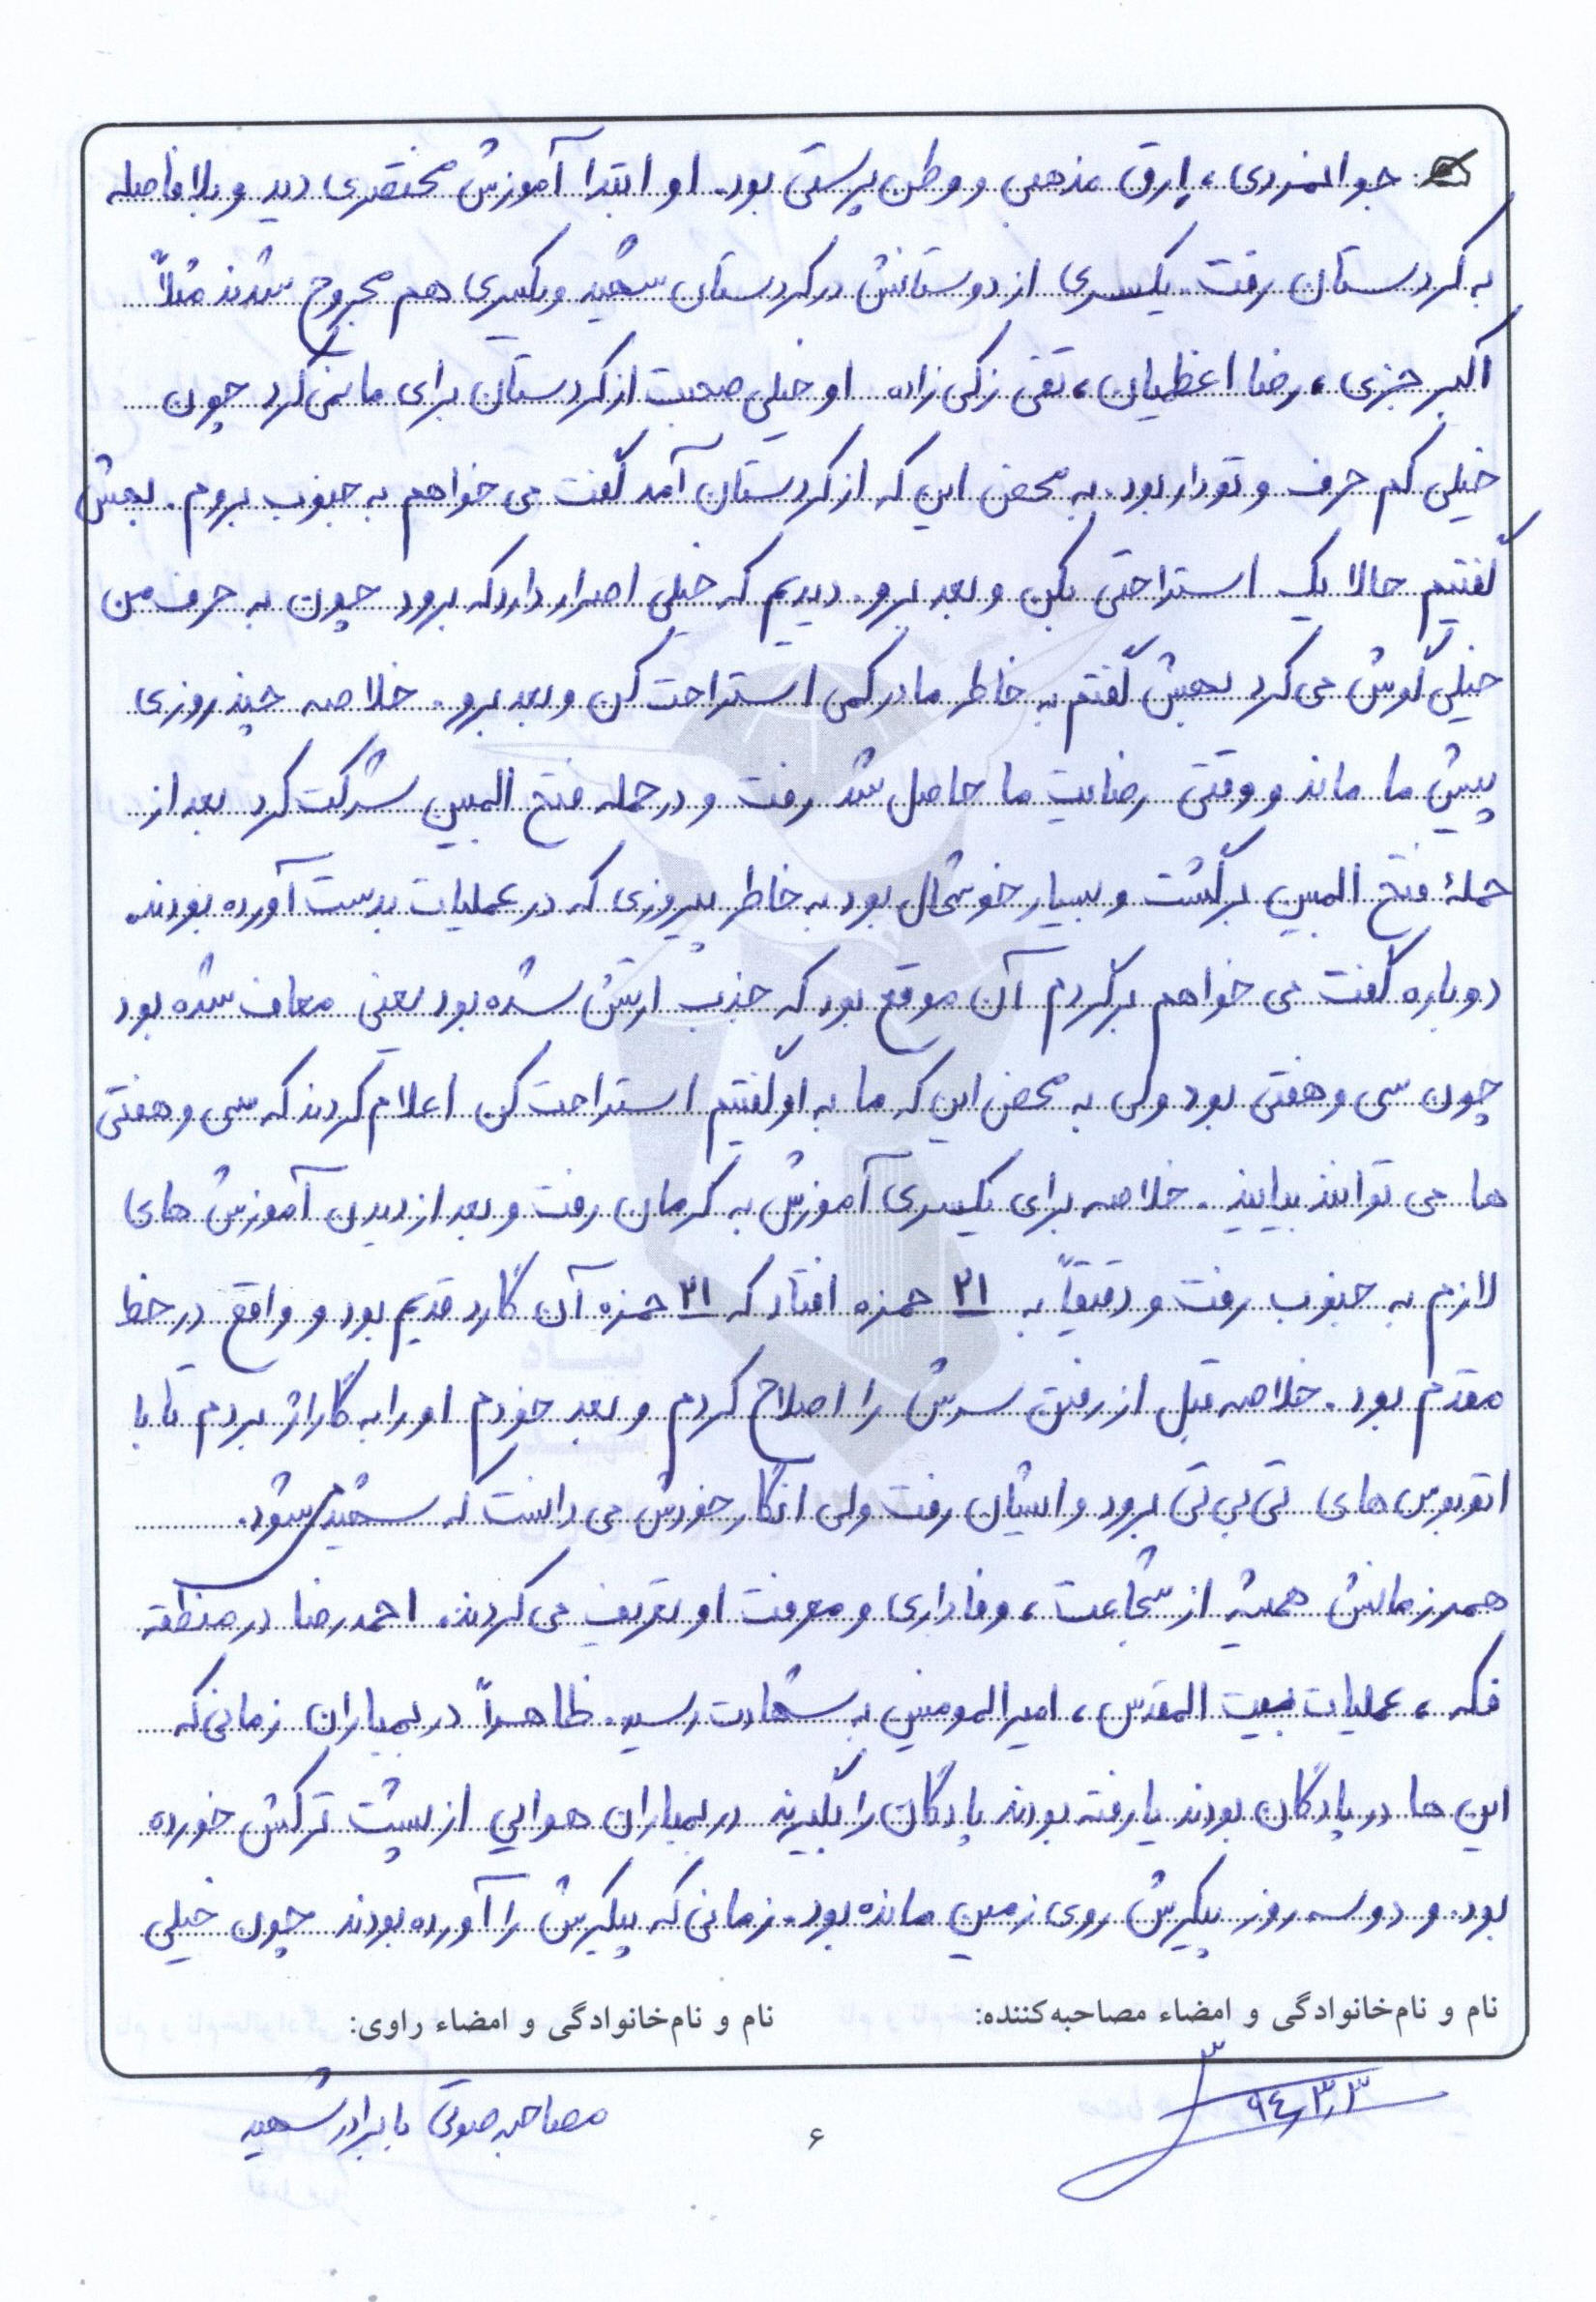 جوانمردی، اِرق مذهبی و وطن پرستی بود. او ابتدا آموزش مختصری دید و بلافاصله
به کردستان رفت. یکسری از دوستانش در کردستان شهید و یکسری هم مجروح شدند مثلاً
اکبر جزی، رضا اعظمیان، تقی زکی زاده. او خیلی صحبت از کردستان برای ما نمی کرد چون
خیلی کم حرف و تودار بود. به محض این که از کردستان آمد گفت می خواهم به جنوب بروم. بهش
گفتیم حالا یک استراحتی بکن و بعد برو. دیدیم که خیلی اصرار دارد که برود چون به حرف من
خیلی گوش می کرد بهش گفتم به خاطر مادر کمی استراحت کن و بعد برو. خلاصه چند روزی
پیش ما ماند و وقتی رضایت ما حاصل شد رفت و در حمله فتح المبین شرکت کرد بعد از
حملهٔ فتح المبین برگشت و بسیار خوشحال بود به خاطر پیروزی که در عملیات بدست آورده بودند.
دوباره گفت می خواهم برگردم آن موقع بود که جذب ارتش شده بود یعنی معاف شده بود
چون سی و هفتی بود ولی به محض این که ما به او گفتیم استراحت کن اعلام کردند که سی و هفتی
ها می توانند بیایند. خلاصه برای یکسری آموزش به کرمان رفت و بعد از دیدن آموزش های
لازم به جنوب رفت و دقیقاً به ۲۱ حمزه افتاد که ۲۱ حمزه آن گارد قدیم بود و واقع در خط
مقدم بود. خلاصه قبل از رفتن سرش را اصلاح کردم و بعد خودم او را به گاراژ بردم تا با
اتوبوس های تی بی تی برود و ایشان رفت ولی انگار خودش می دانست که شهید می شود.
همرزمانش همیشه از شجاعت، وفاداری و معرفت او تعریف می کردند. احمدرضا در منطقه
فکه، عملیات بیت المقدس، امیرالمومنین به شهادت رسید. ظاهراً در بمباران زمانی که
این ها در پادگان بودند یا رفته بودند پادگان را بگیرند در بمباران هوایی از پشت ترکش خورده
بود. و دو سه روز پیکرش روی زمین مانده بود. زمانی که پیکرش را آورده بودند چون خیلی
نام و نام‌خانوادگی و امضاء مصاحبه‌کننده:
نام و نام‌خانوادگی و امضاء راوی:
۹۴،۳،۳
مصاحبه صوتی با برادر شهید
۶